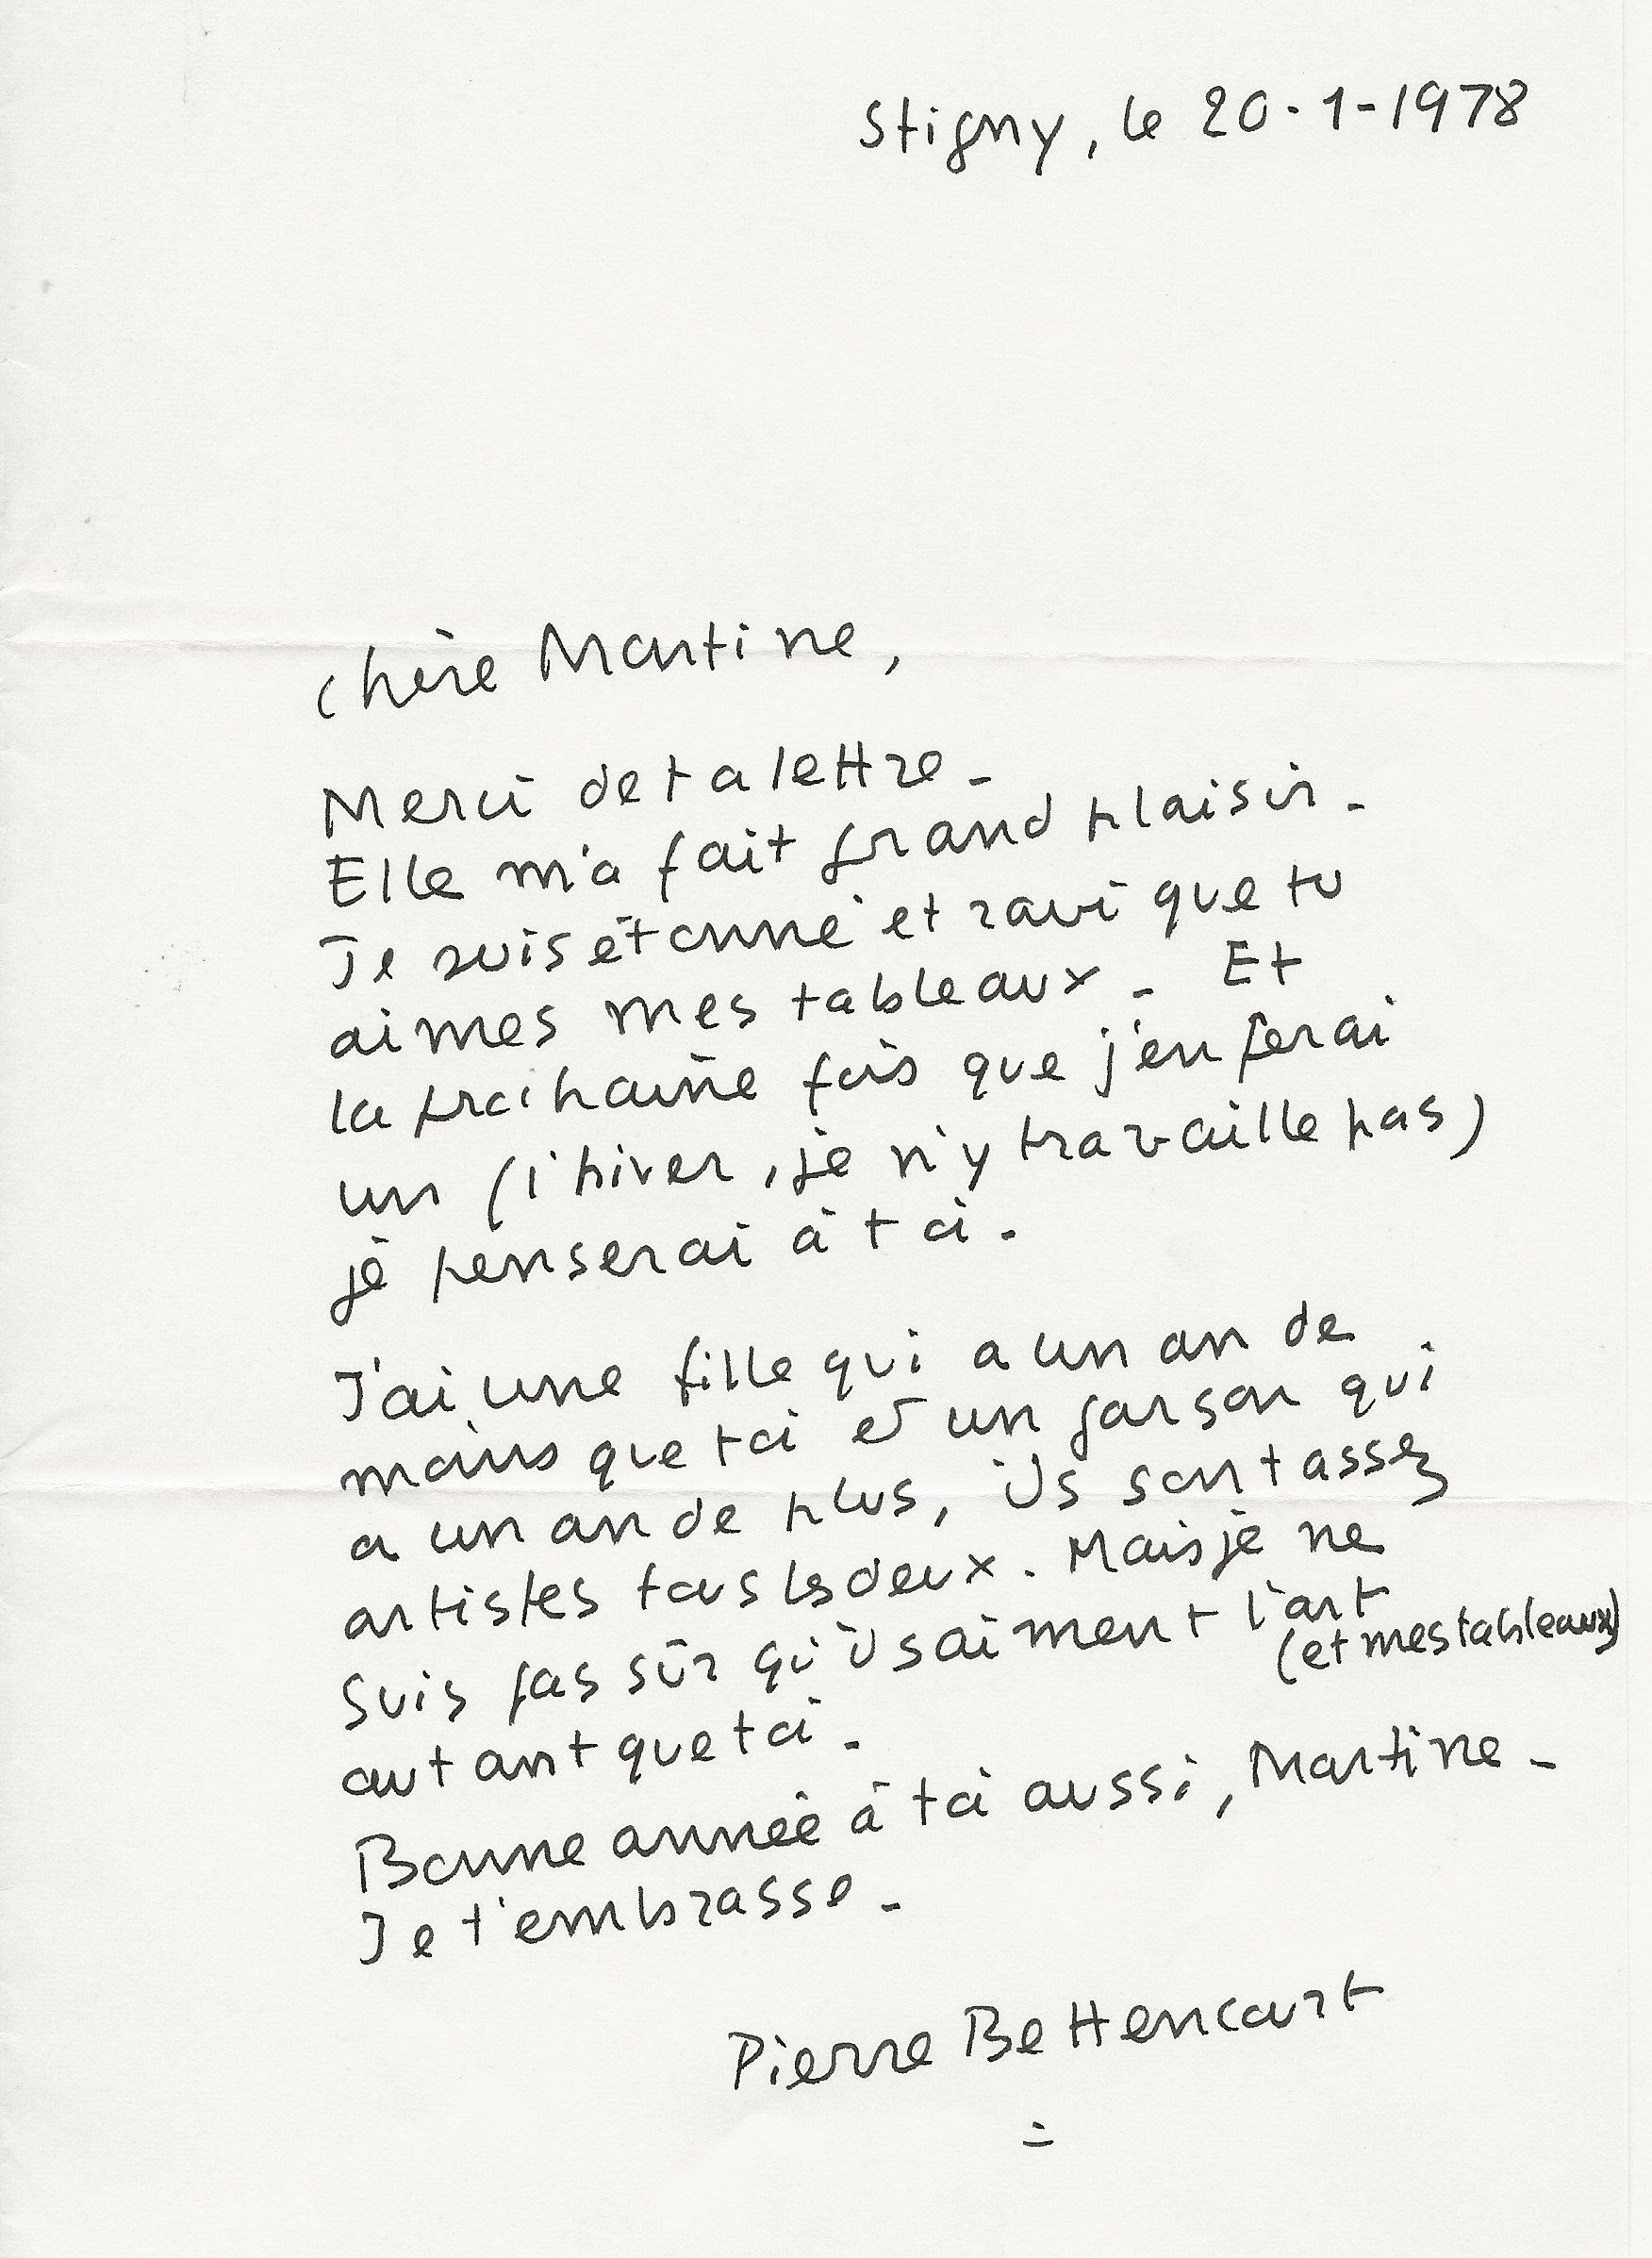 Stigny, le 20-1-1978
Chère Martine,
Merci de ta lettre -
Elle m'a fait grand plaisir -
Je suis étonné et ravi que tu
aimes mes tableaux - Et
la prochaine fois que j'en ferai
un (l'hiver, je n'y travaille pas)
je penserai à toi.
J'ai une fille qui a un an de
moins que toi et un garson qui
a un an de plus, ils sont assez
artistes tous les deux. Mais je ne
suis pas sûr qu'ils aiment l'art
(et mes tableaux)
autant que toi.
Bonne année à toi aussi, Martine -
Je t'embrasse -
Pierre Bettencourt